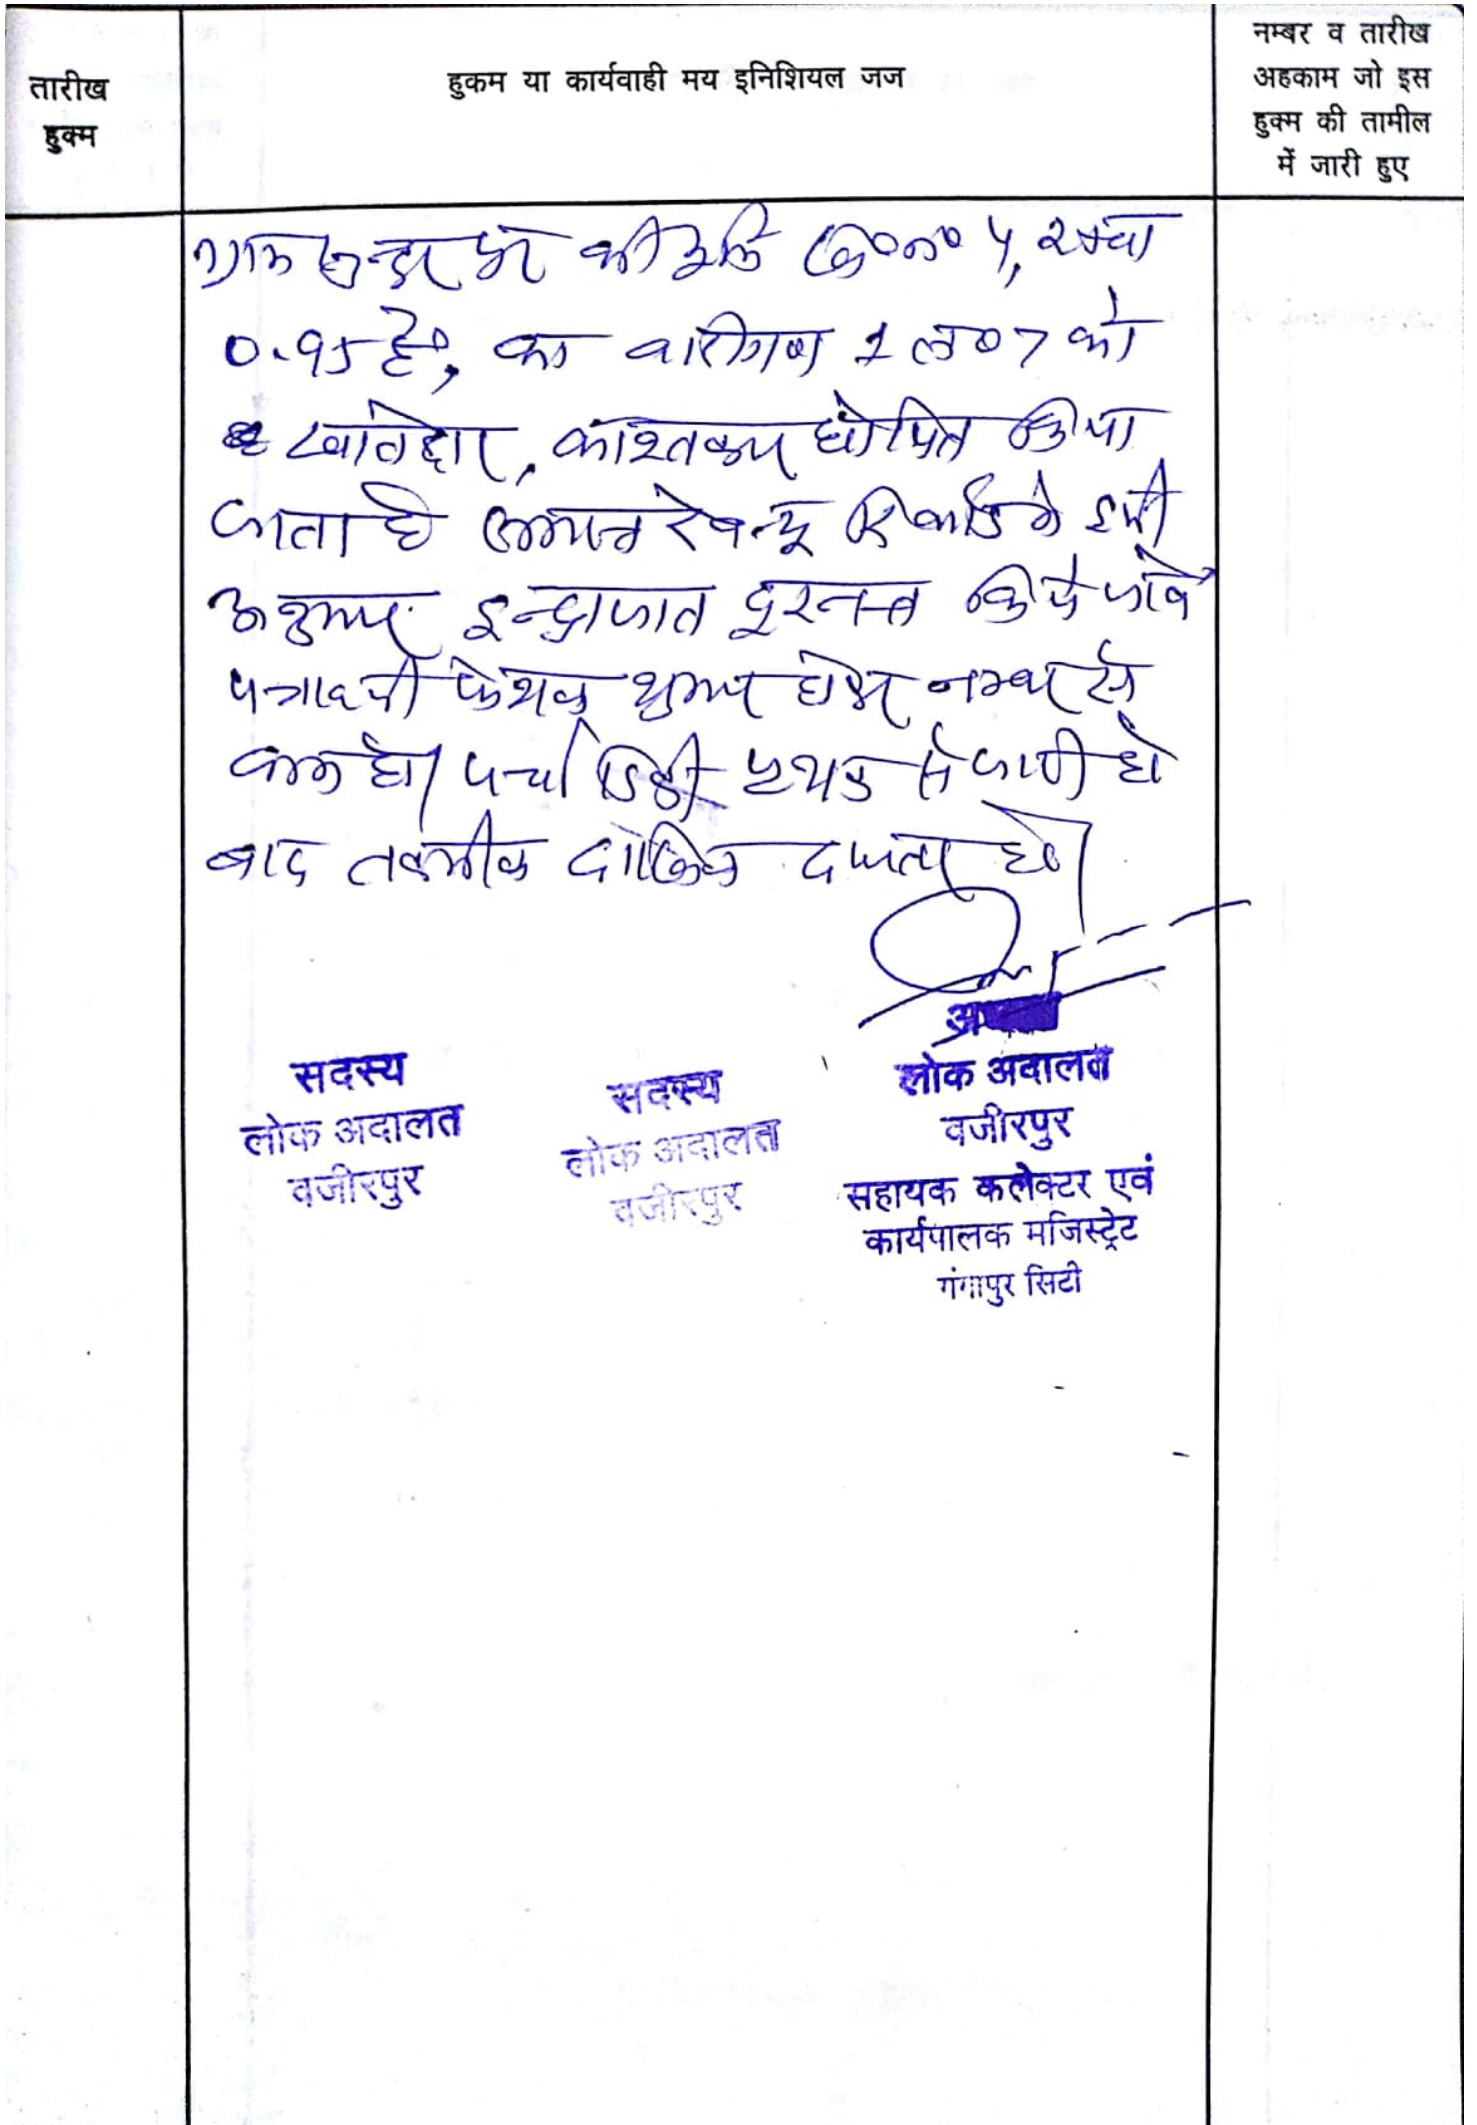 तारीख
हुक्म
हुकम या कार्यवाही मय इनिशियल जज
नम्बर व तारीख
अहकाम जो इस
हुक्म की तामील
में जारी हुए
ग्राम सुन्दरपुर की भूमि ख०न० 5, रकबा
0.95 है०, का वादीगण 1 ल० 7 को
खातेदार, काश्तकार घोषित किया
जाता है रेवेन्यू रिकार्ड मे इसी
अनुसार इन्द्राजात दुरस्त किये जावे
पत्रावली फैसल शुमार होकर नम्बर से
कम हो। पर्चा डिक्री पृथक से जारी हो
बाद तकमील दाखिल दफ्तर हो।
सदस्य
लोक अदालत
वजीरपुर
सदस्य
लोक अदालत
वजीरपुर
लोक अदालत
वजीरपुर
सहायक कलेक्टर एवं
कार्यपालक मजिस्ट्रेट
गंगापुर सिटी